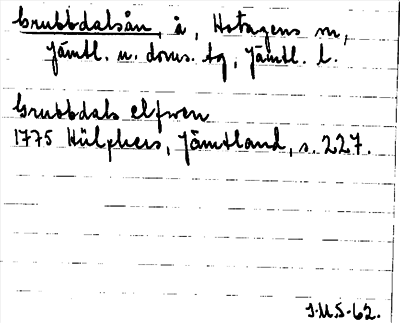 Grubbdalsån, å, Hotagens sn,
Jämtl. n. doms. tg, Jämtl. l.
Grubbdals elfwen
1775 Hülphers, Jämtland, s. 227.
S.M.S-62.